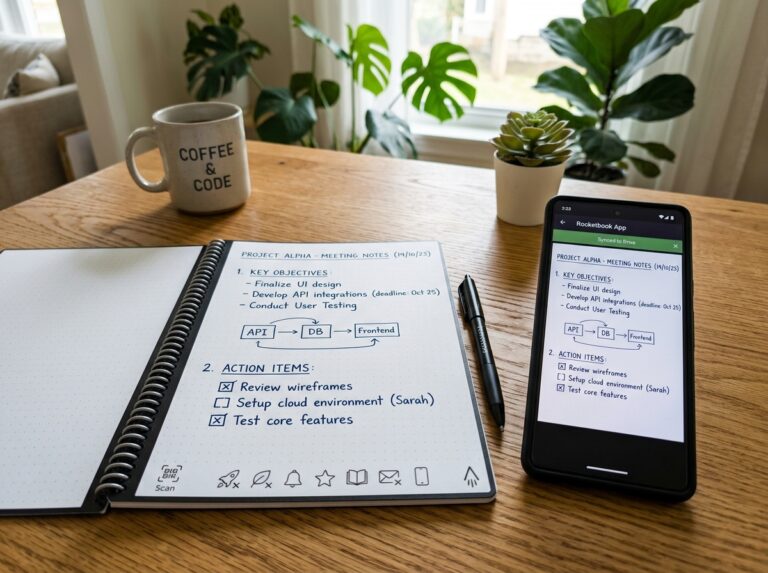 COFFEE
&
CODE
PROJECT ALPHA - MEETING NOTES (19/10/23)
1. KEY OBJECTIVES:
- Finalize UI design
- Develop API integrations (deadline: Oct 25)
- Conduct User Testing
API
DB
Frontend
2. ACTION ITEMS:
Review wireframes
Setup cloud environment (Sarah)
Test core features
Scan
Rocketbook App
Synced to Drive
PROJECT ALPHA - MEETING NOTES (19/10/23)
1. KEY OBJECTIVES:
- Finalize UI design
- Develop API integrations (deadline: Oct 25)
- Conduct User Testing
API
DB
Frontend
2. ACTION ITEMS:
Review wireframes
Setup cloud environment (Sarah)
Test core features